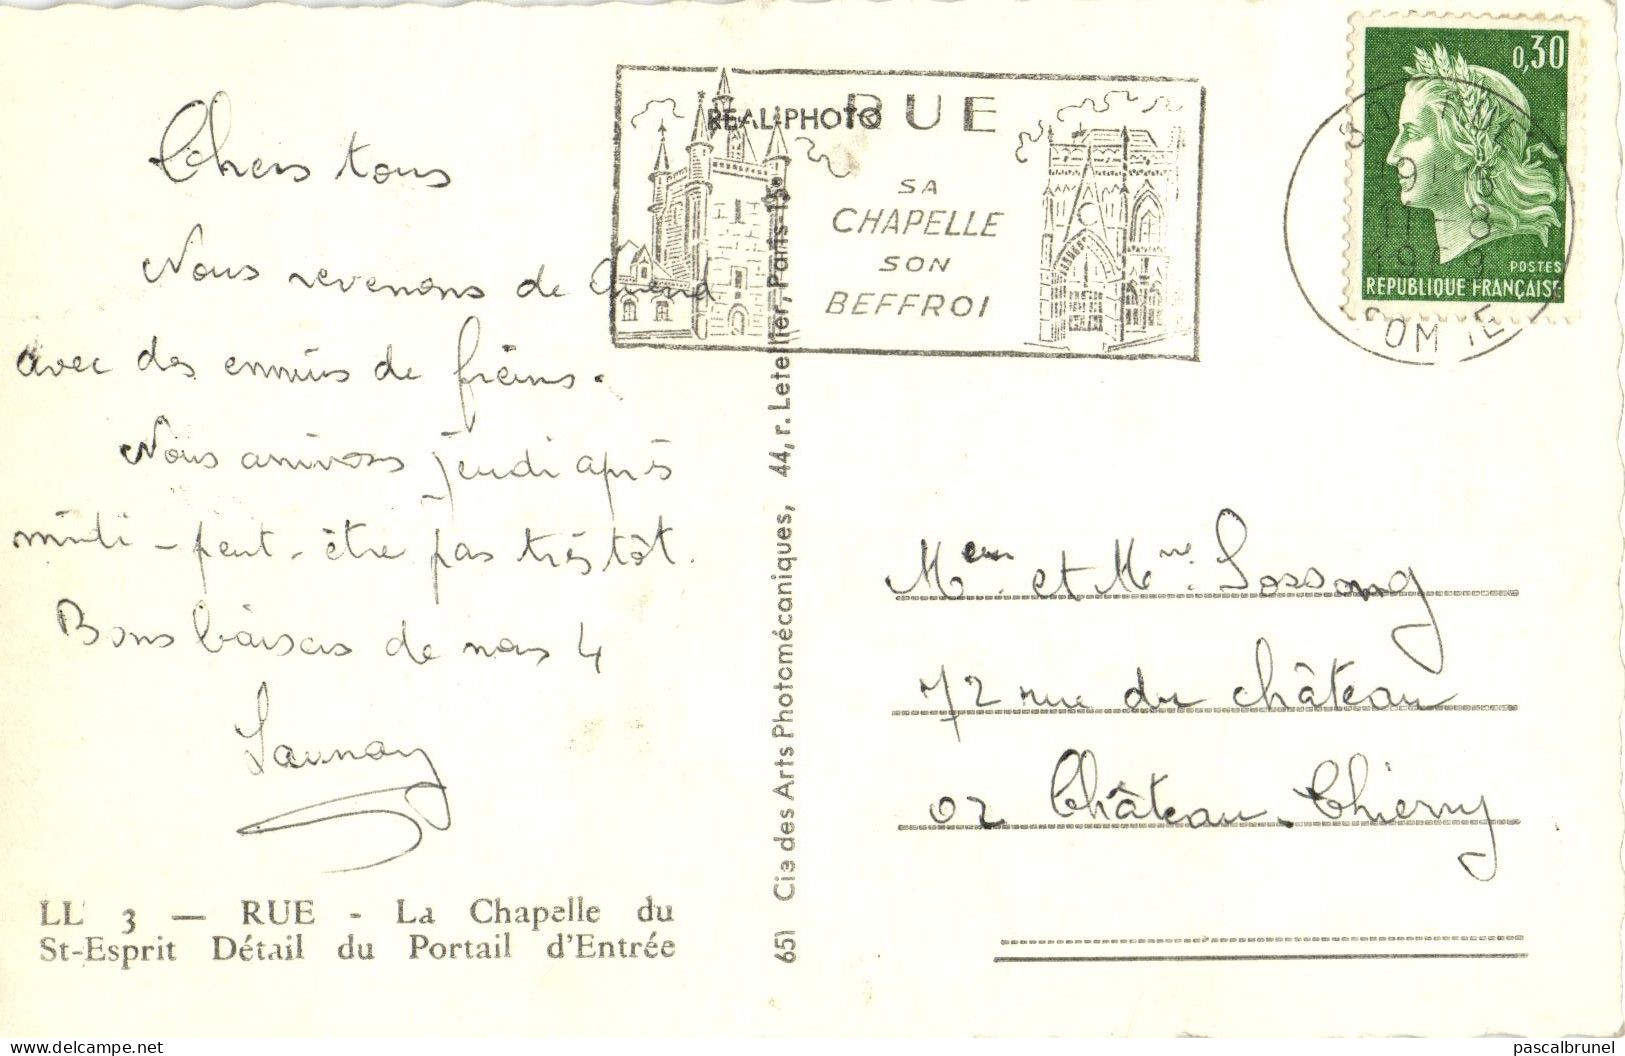 Chers tous
Nous revenons de Quend
avec des ennuis de freins.
Nous arrivons jeudi après
midi - peut-être pas très tôt.
Bons baisers de nous 4
Launay
LL 3 — RUE - La Chapelle du
St-Esprit Détail du Portail d'Entrée
651 Cie des Arts Photomécaniques, 44, r. Letellier, Paris-15e
REAL-PHOTO
RUE
SA
CHAPELLE
SON
BEFFROI
0,30
POSTES
REPUBLIQUE FRANÇAISE
11 - 8
Meur et Mme Lossong
72 rue du château
02 Château-Thierry
pascalbrunel
www.delcampe.net